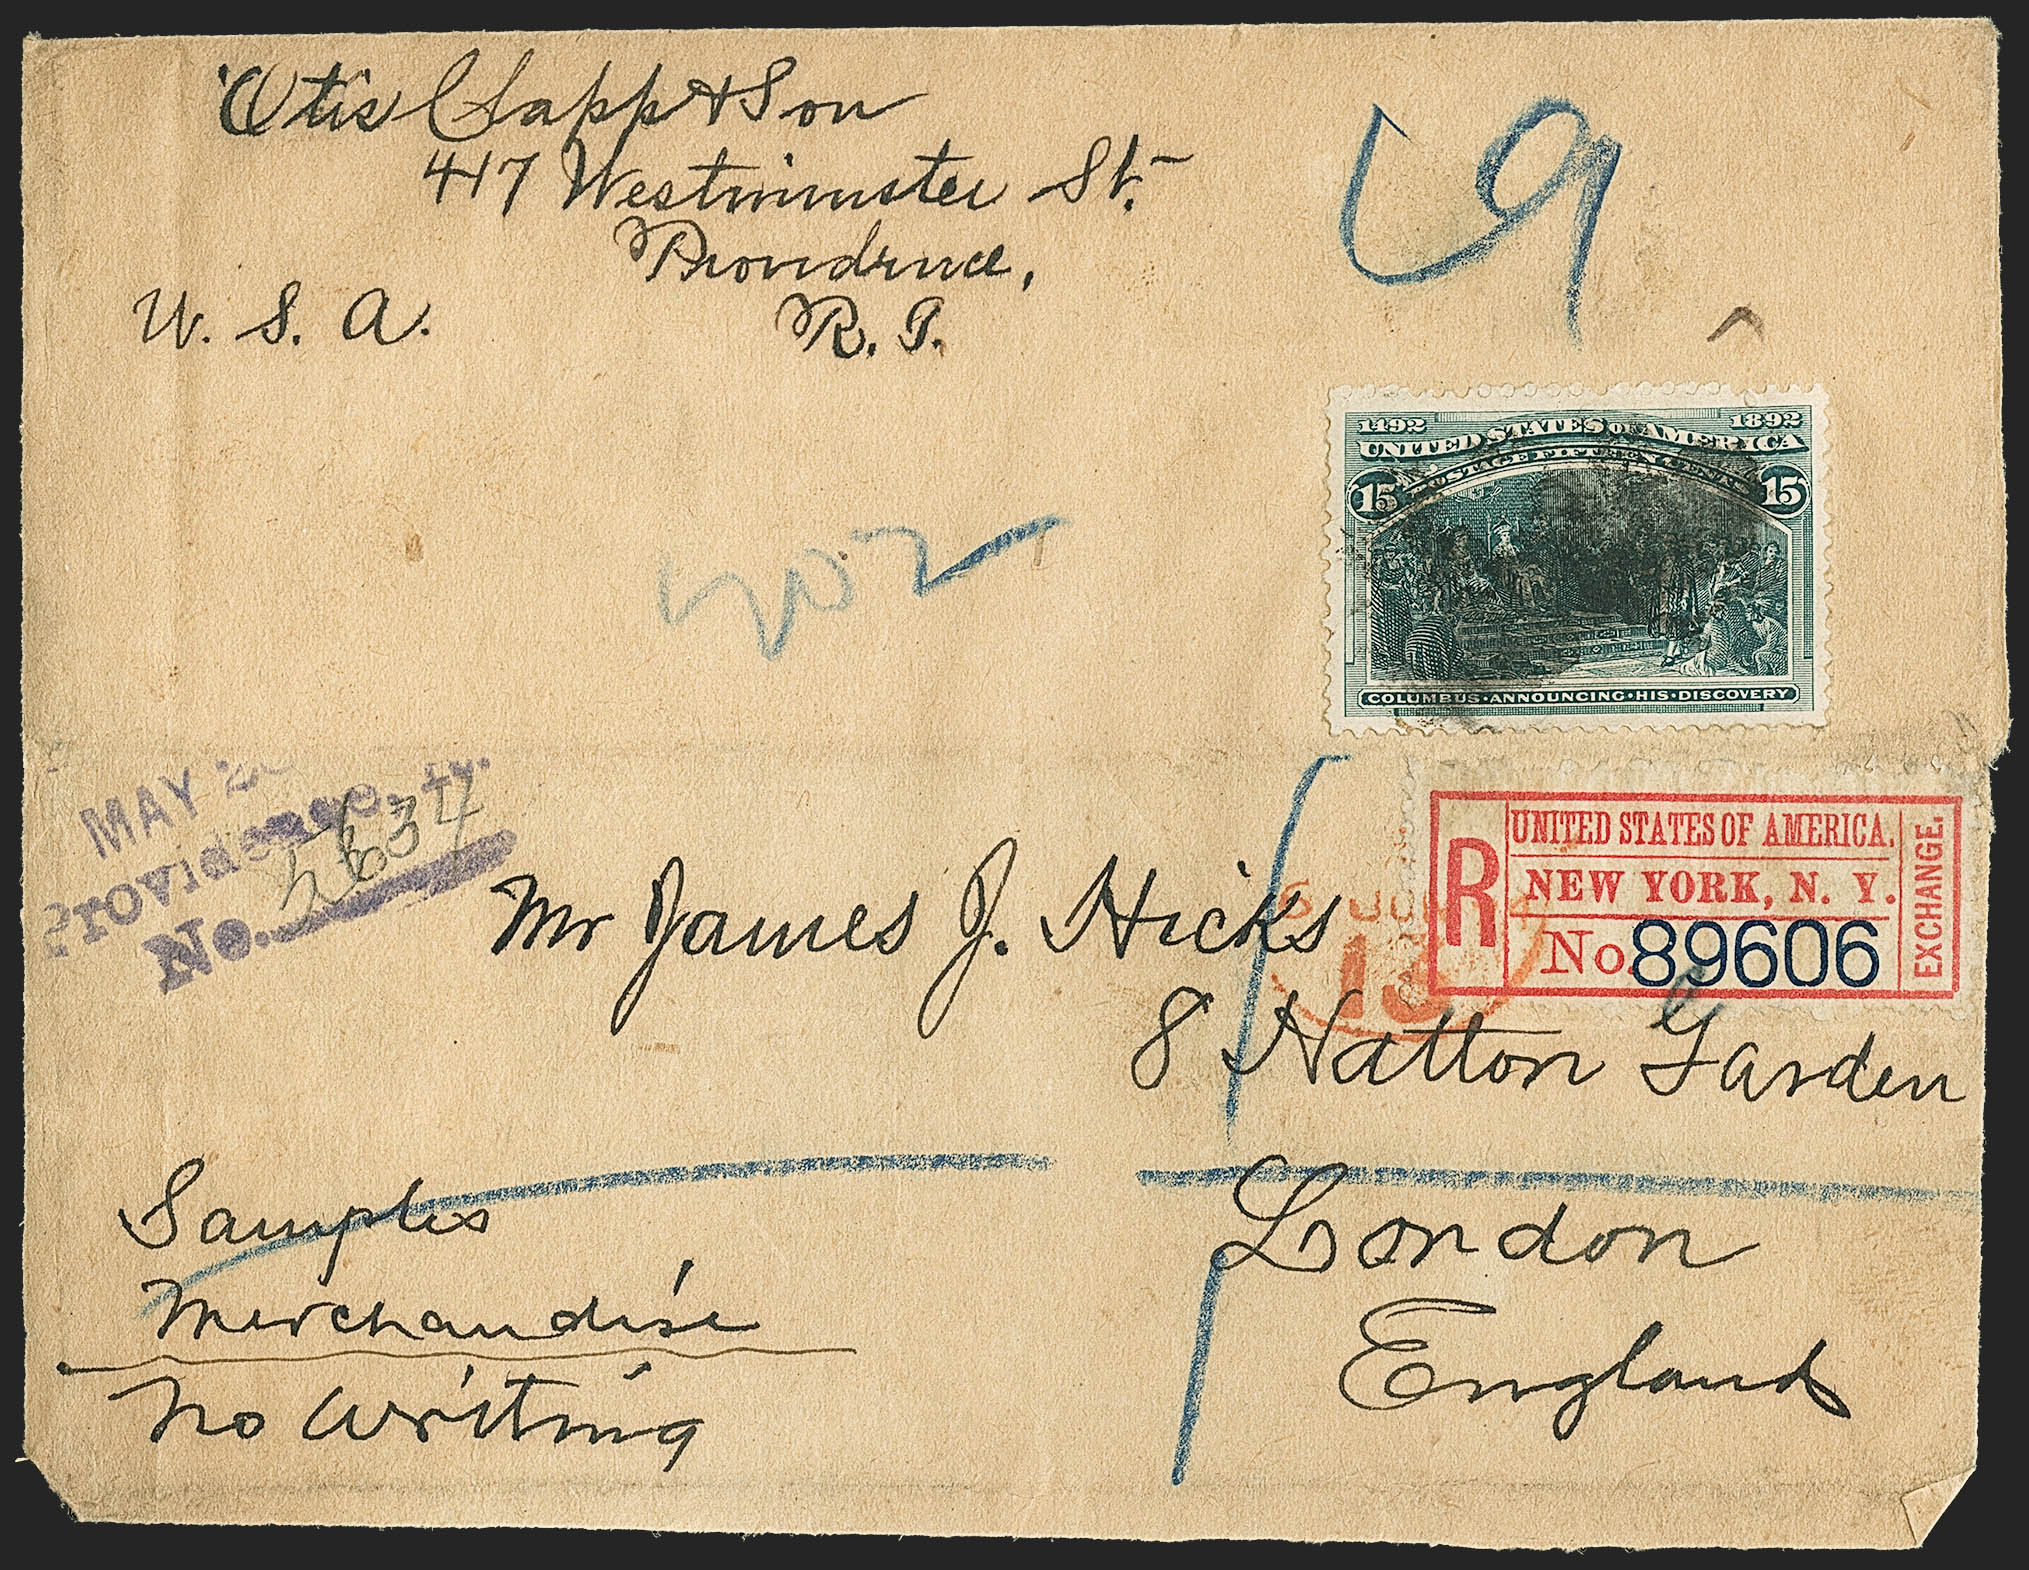 Otis Clapp & Son
417 Westminster St.
Providence,
R. I.
U. S. A.
19
1492 1892
UNITED STATES OF AMERICA
POSTAGE FIFTEEN CENTS
15 15
COLUMBUS·ANNOUNCING·HIS·DISCOVERY
MAY
Providence,
No.
R
UNITED STATES OF AMERICA.
NEW YORK, N. Y.
No. 89606
EXCHANGE.
Mr James J. Hicks
8 Hatton Garden
London
England
Samples
Merchandise
No Writing